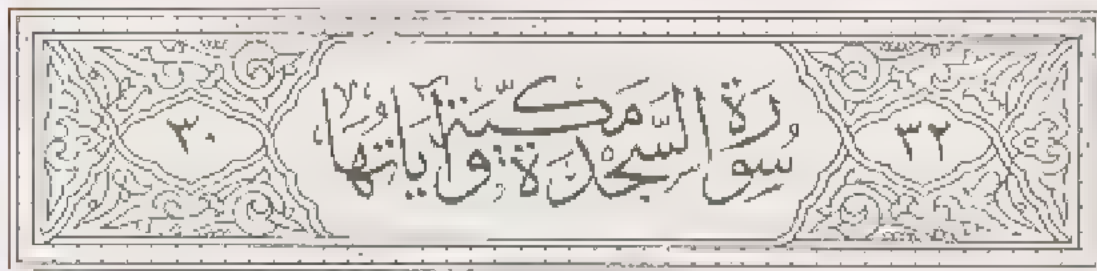 ٣٢ سُورَةُ السَّجْدَةِ مَكِّيَّة وَآيَاتُهَا ٣٠